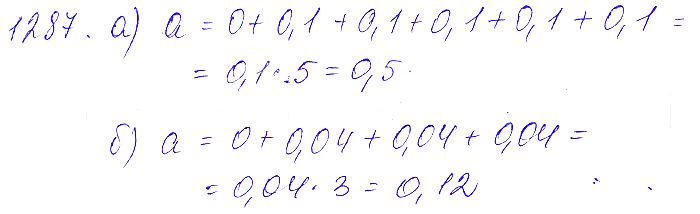 1287. а) a = 0 + 0,1 + 0,1 + 0,1 + 0,1 + 0,1 =
= 0,1 · 5 = 0,5.
б) a = 0 + 0,04 + 0,04 + 0,04 =
= 0,04 · 3 = 0,12